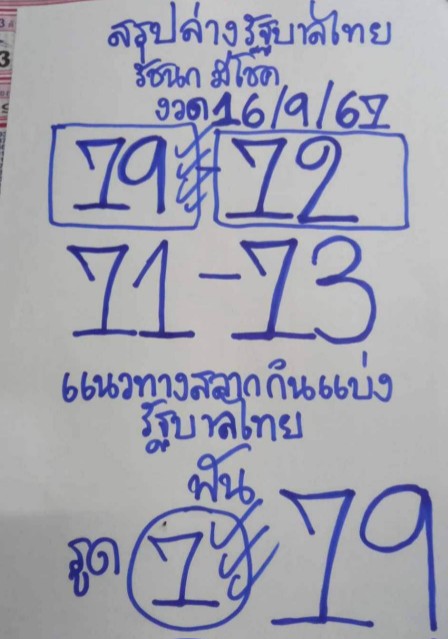 สรุปล่างรัฐบาลไทย
รัชนก มีโชค
งวด 16/9/67
79 - 72
71 - 73
แนวทางสลากกินแบ่ง
รัฐบาลไทย
ฟัน
รูด 7 79